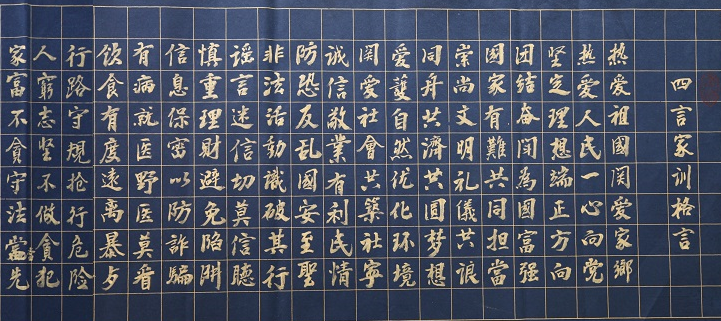 四言家训格言
热爱祖國関爱家鄉
热爱人民一心向党
坚定理想端正方向
团结奋鬥為國富强
國家有難共同担當
崇尚文明礼儀共
同舟共濟共圆梦想
爱護自然优化环境
関爱社會共築社寧
诚信敬業有利民情
防恐反乱國安至聖
非法活動識破其行
谣言迷信切莫信聽
慎重理財避免陷阱
信息保密以防詐騙
有病就医野医莫看
饮食有度遠离暴夕
行路守規抢行危险
人窮志坚不做貪犯
家富不貪守法當先